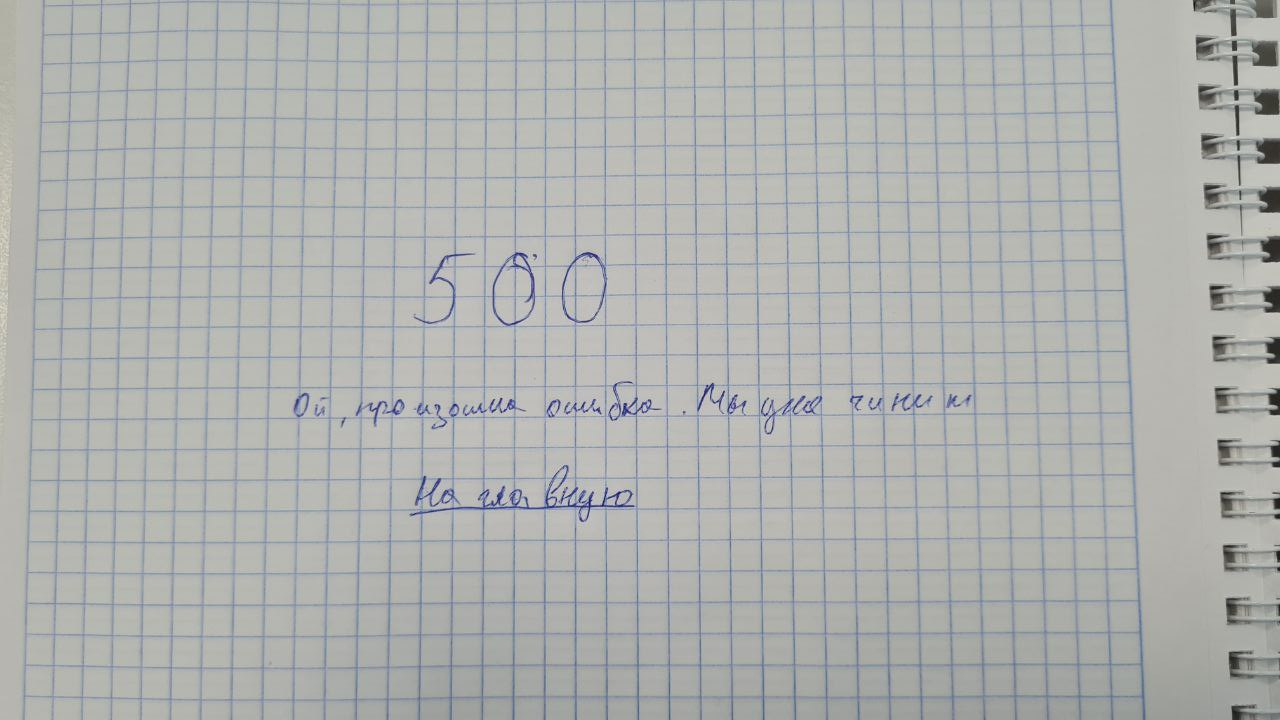 500
Ой, произошла ошибка. Мы уже чиним
На главную